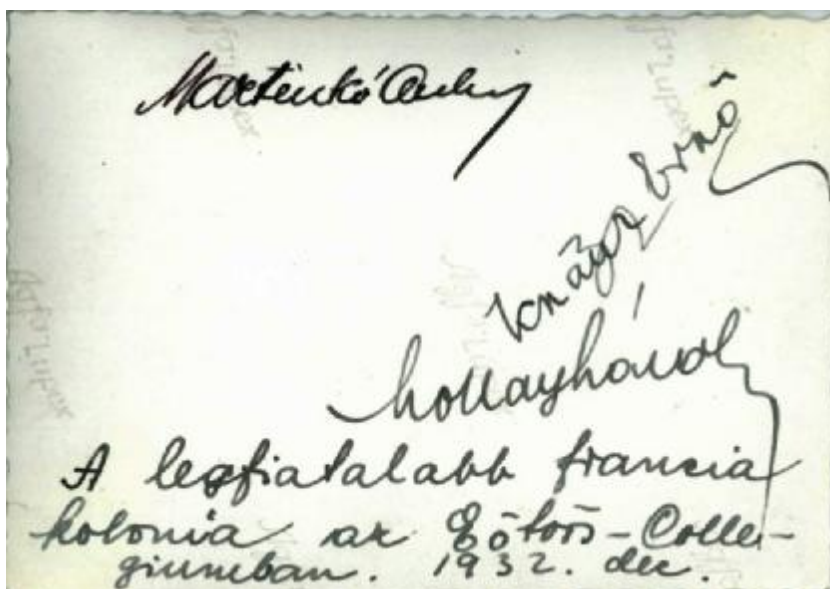 Martinkó András
Knáyz Ernő
Mollay Károly
A legfiatalabb francia
kolonia az Eötvös-Colle-
giumban. 1932. dec.